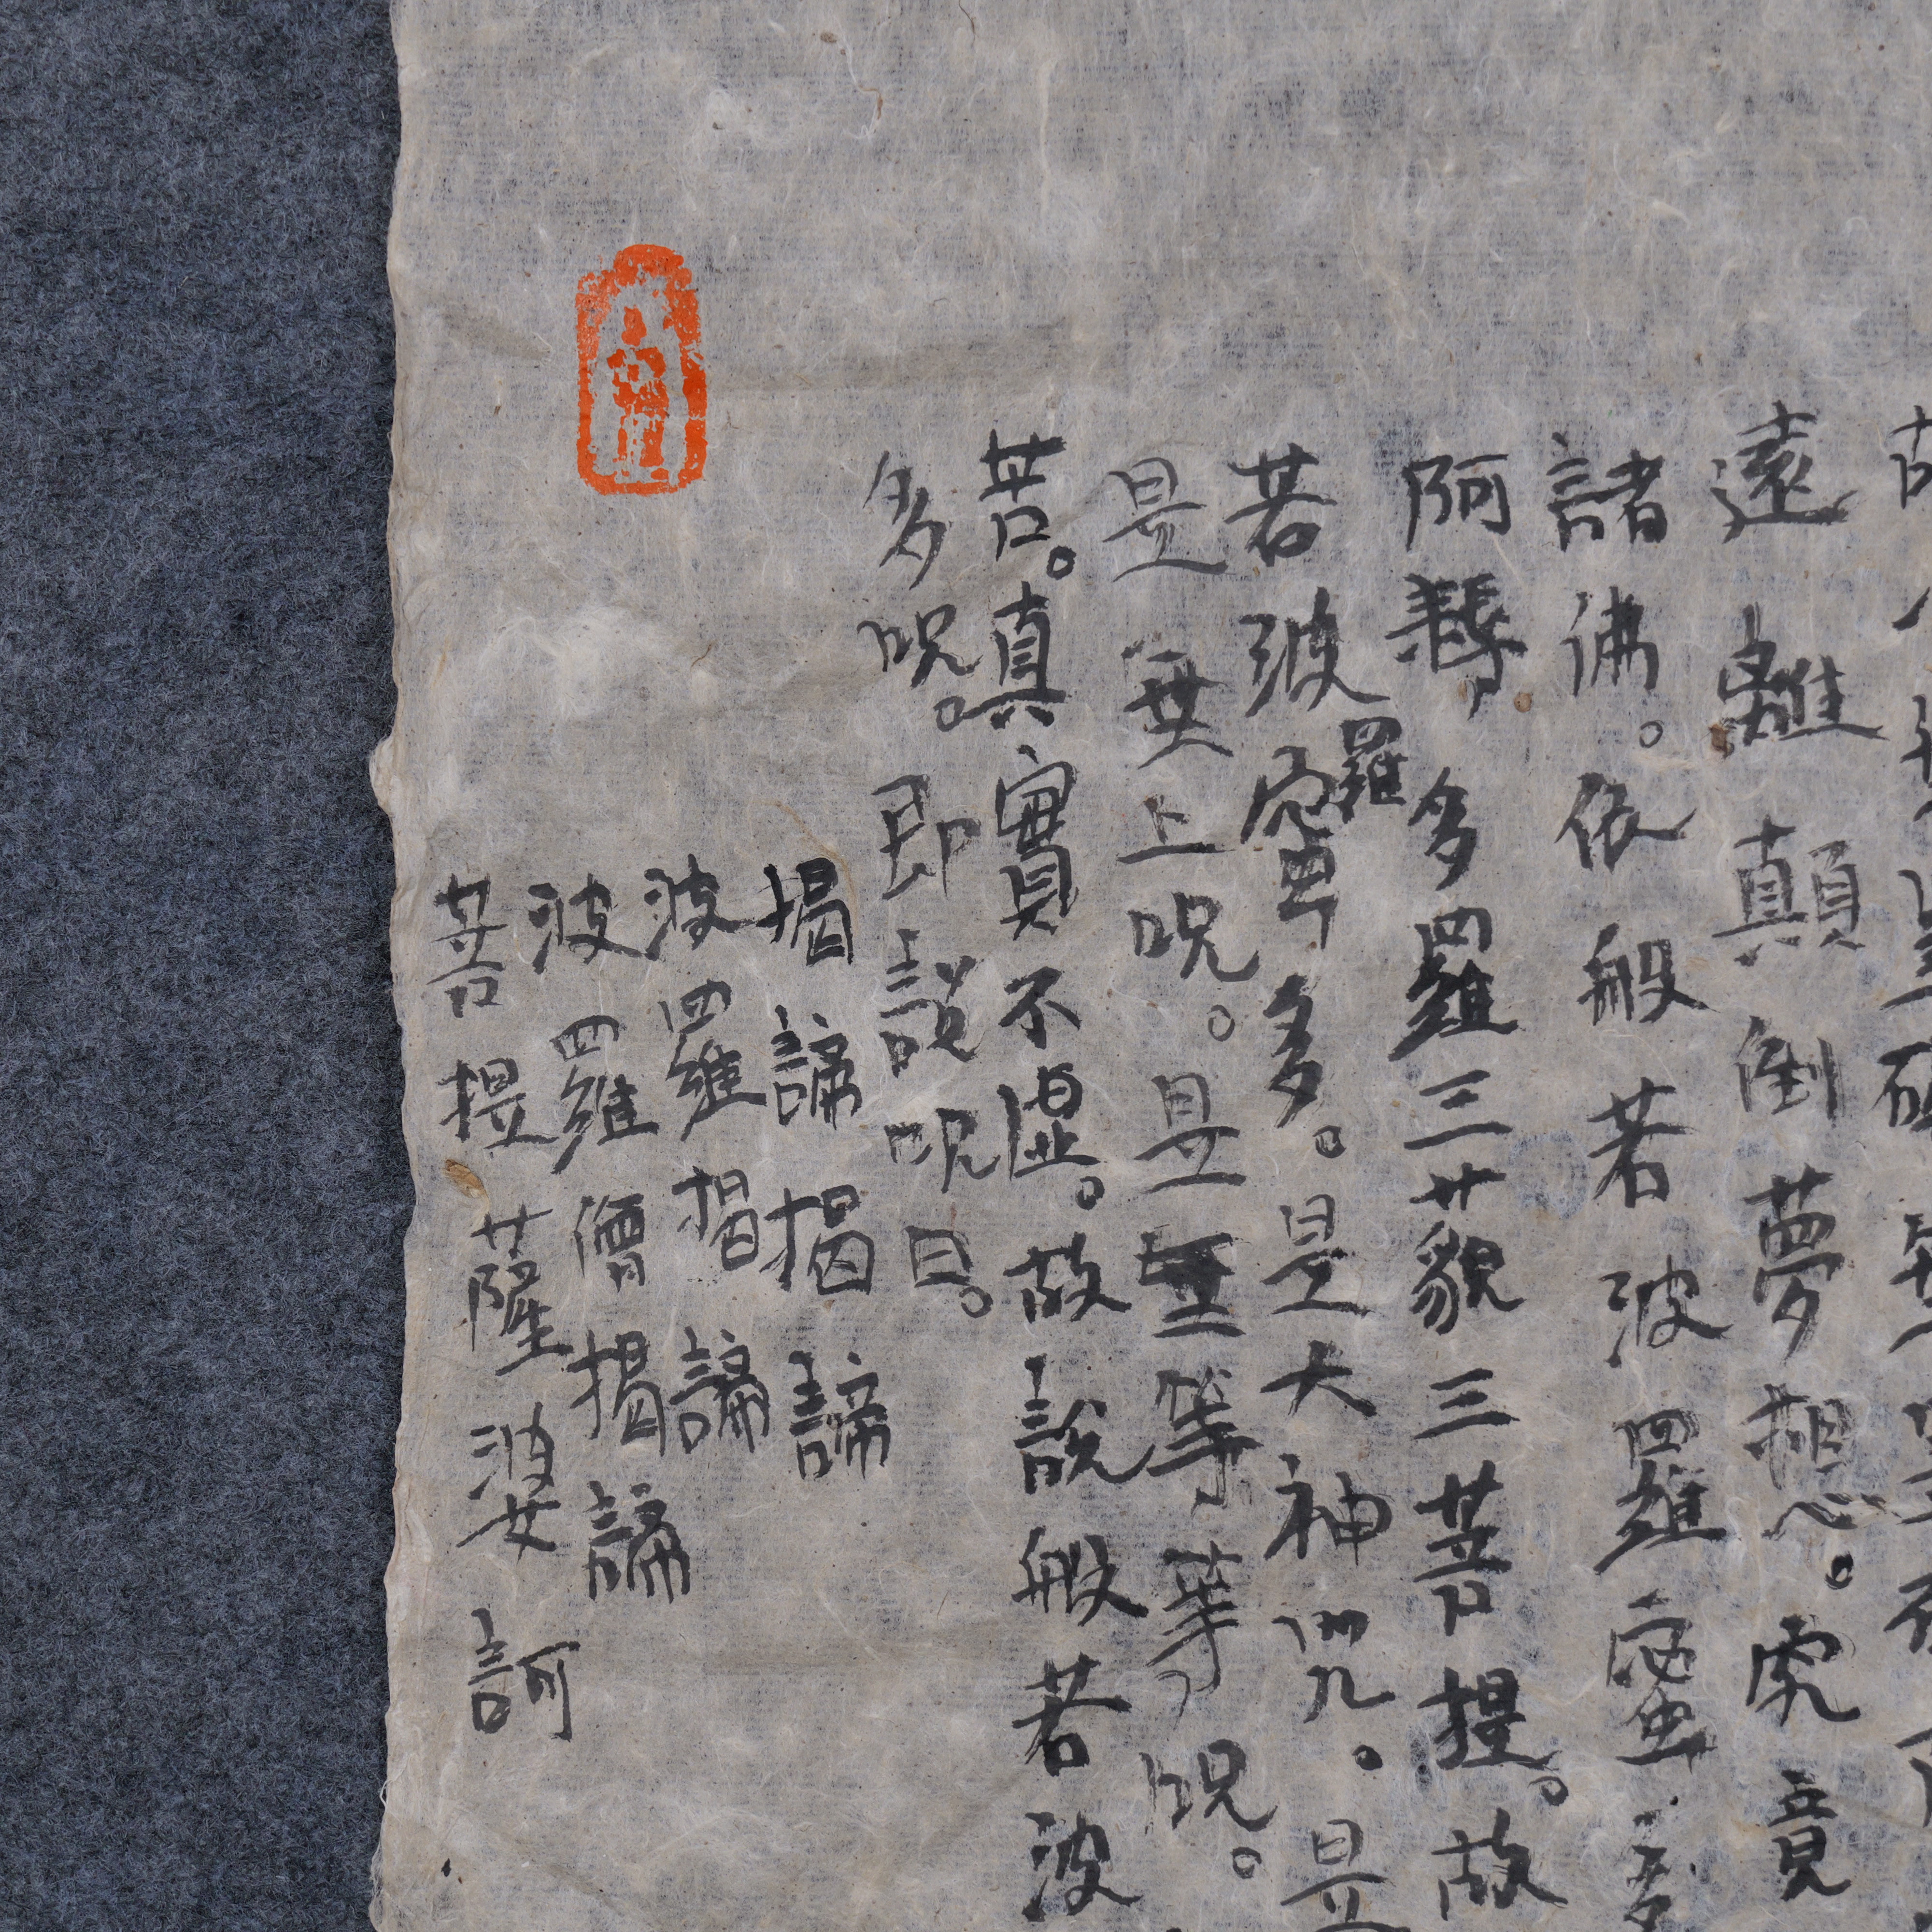 遠離顛倒夢想。究竟
諸佛。依般若波羅蜜多
阿耨多羅三藐三菩提。故
若波羅蜜多。是大神咒。是
是無上呪。是無等等呪。
苦。真實不虛。故說般若波
多呪。即說呪曰。
揭諦揭諦
波羅揭諦
波羅僧揭諦
菩提薩婆訶